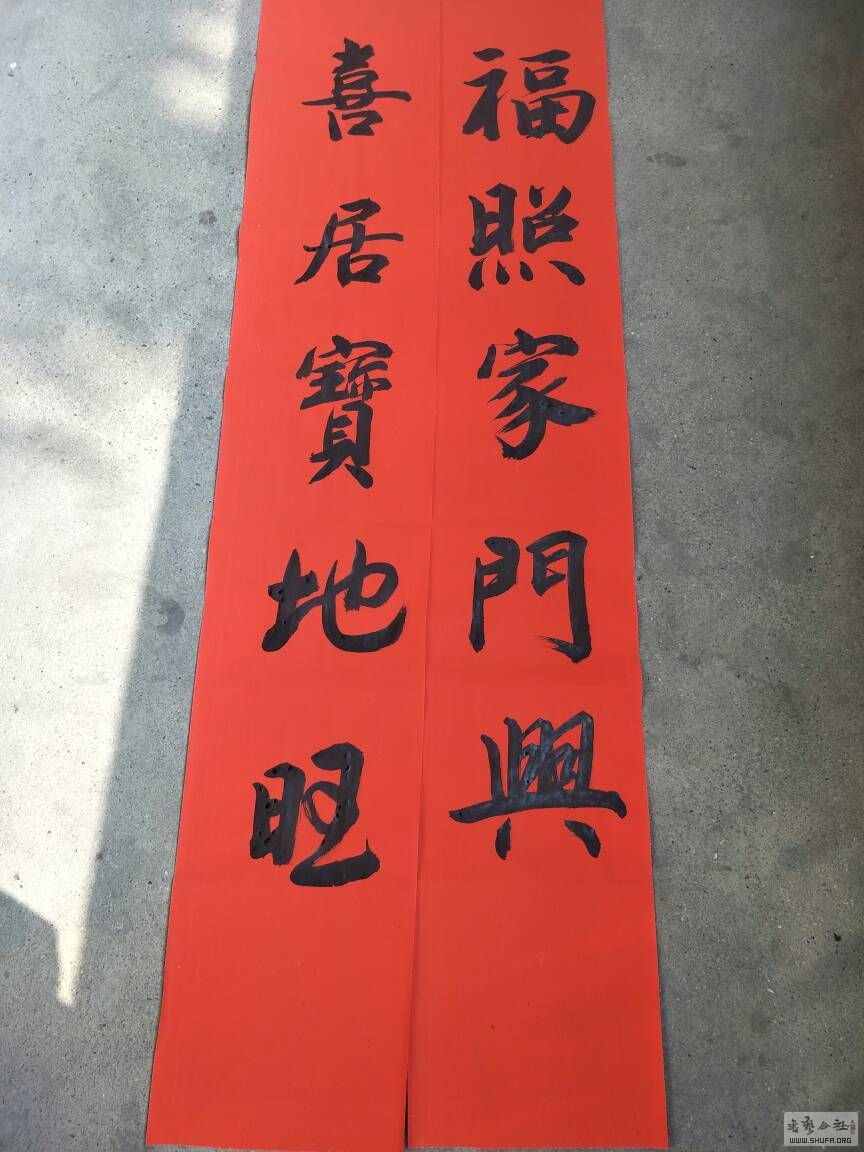 福照家門興
喜居寶地旺
WWW.SHUFA.ORG